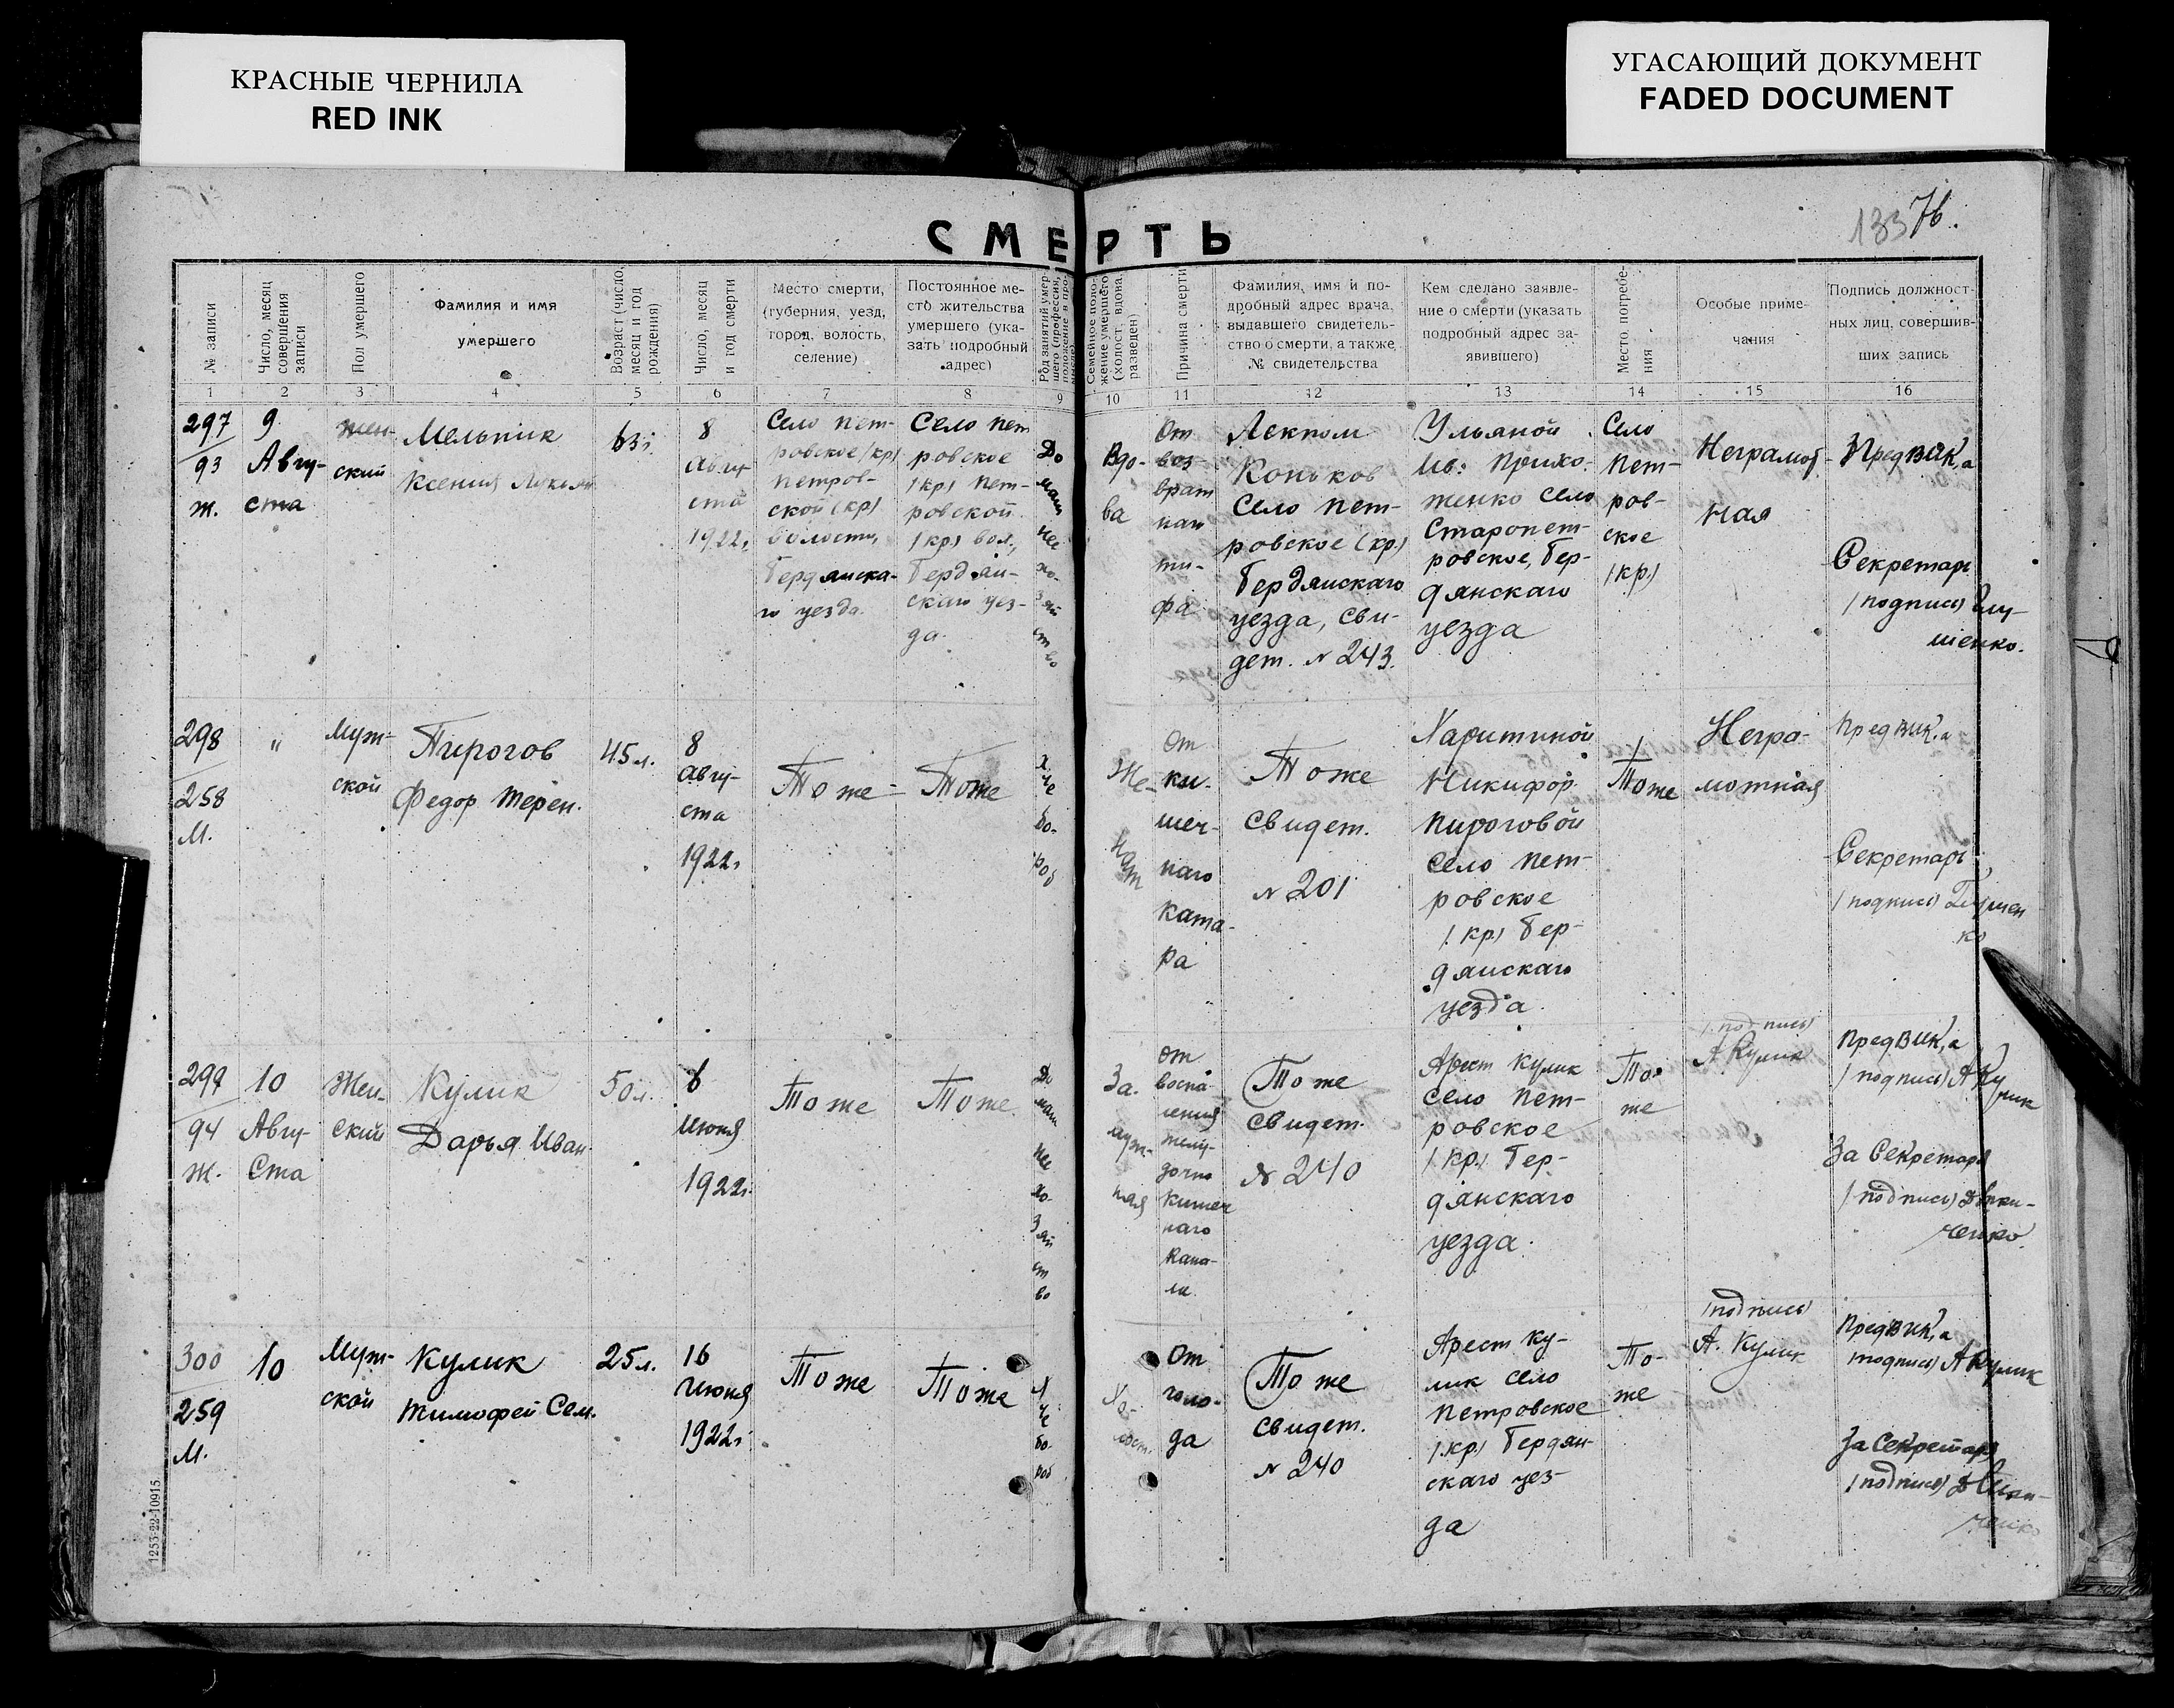 КРАСНЫЕ ЧЕРНИЛА
RED INK
УГАСАЮЩИЙ ДОКУМЕНТ
FADED DOCUMENT
133 76.
СМЕРТЬ
№ записи
Число, месяц
совершения
записи
Пол умершего
Фамилия и имя
умершего
Возраст (число,
месяц и год
рождения)
Число, месяц
и год смерти
Место смерти,
(губерния, уезд,
город, волость,
селение)
Постоянное ме-
сто жительства
умершего (ука-
зать подробный
адрес)
Род занятий умер-
шего (профессия,
положение в про-
Семейное поло-
жение умершего
(холост, вдова,
разведен)
Причина смерти
Фамилия, имя и по-
дробный адрес врача,
выдавшего свидетель-
ство о смерти, а также
№ свидетельства
Кем сделано заявле-
ние о смерти (указать
подробный адрес за-
явившего)
Место погребе-
ния
Особые приме-
чания
Подпись должност-
ных лиц, совершив-
ших запись
1 2 3 4 5 6 7 8 9 10 11 12 13 14 15 16
297
93
ж.
9
Авгу-
ста
жен-
ский
Мельник
Ксения
63 г.
8
Авгу-
ста
1922 г.
Село Пет-
ровское /кр/
Петров-
ской (кр)
волости,
Бердянска-
го уезда.
Село Пет
ровское
/кр/ Пет-
ровской
/кр/ вол.,
Бердян-
скаго уез-
да.
До
маш
нее
хо-
зяй
ст
во
Вдо-
ва
От
воз-
врат
наго
ти-
фа
Лекпом
Коньков
Село Пет-
ровское (кр.)
Бердянскаго
уезда, сви-
дет. № 243.
Ульяной
Ив: Прихо-
женко село
Старопет-
ровское, Бер-
дянскаго
уезда
Село
Пет-
ров-
ское
/кр./
Неграмот-
ная
Предвик,а
Секретарь
/подпись/ Глу-
шенко.
298
258
М.
"
Муж-
ской
Пирогов
Федор Терен.
45 л.
8
Авгу-
ста
1922 г
Тоже
Тоже
Х
ле
бо-
роб
Же-
нат
От
ки-
шеч-
наго
ката-
ра
Тоже
Свидет.
№ 201
Харитиной
Никифор.
Пироговой
село Пет-
ровское
/кр/ Бер-
дянскаго
уезда.
Тоже
Негра-
мотная
Предвик,а
Секретарь
/подпись/ Глушен
ко
299
94
Ж.
10
Авгу-
Ста
Жен-
ский
Кулик
Дарья Иван.
50 л.
6
Июня
1922 г.
Тоже
Тоже.
До
маш
нее
хо-
зяй
ст
во
За-
муж-
няя
От
воспа-
ления
желу-
дочно
кишеч
наго
кана-
ла.
Тоже
Свидет.
№ 240
Арест Кулик
село Пет-
ровское
/кр./ Бер-
дянскаго
уезда.
То-
же
/подпись/
А. Кулик
Предвик,а
/подпись/ А Кулик
За Секретаря
/подпись/
300
259
М.
10
Муж-
ской
Кулик
Тимофей Сем.
25 л.
16
Июня
1922 г.
Тоже
Тоже
Х
ле
бо-
роб
Хо-
лост.
От
голо-
да
Тоже
Свидет.
№ 240
Арест Ку-
лик село
Петровское
/кр./ Бердян-
скаго уез-
да
То-
же
/подпись/
А. Кулик
Предвик,а
/подпись/ А Кулик
За Секретаря
/подпись/
1253-22-10915